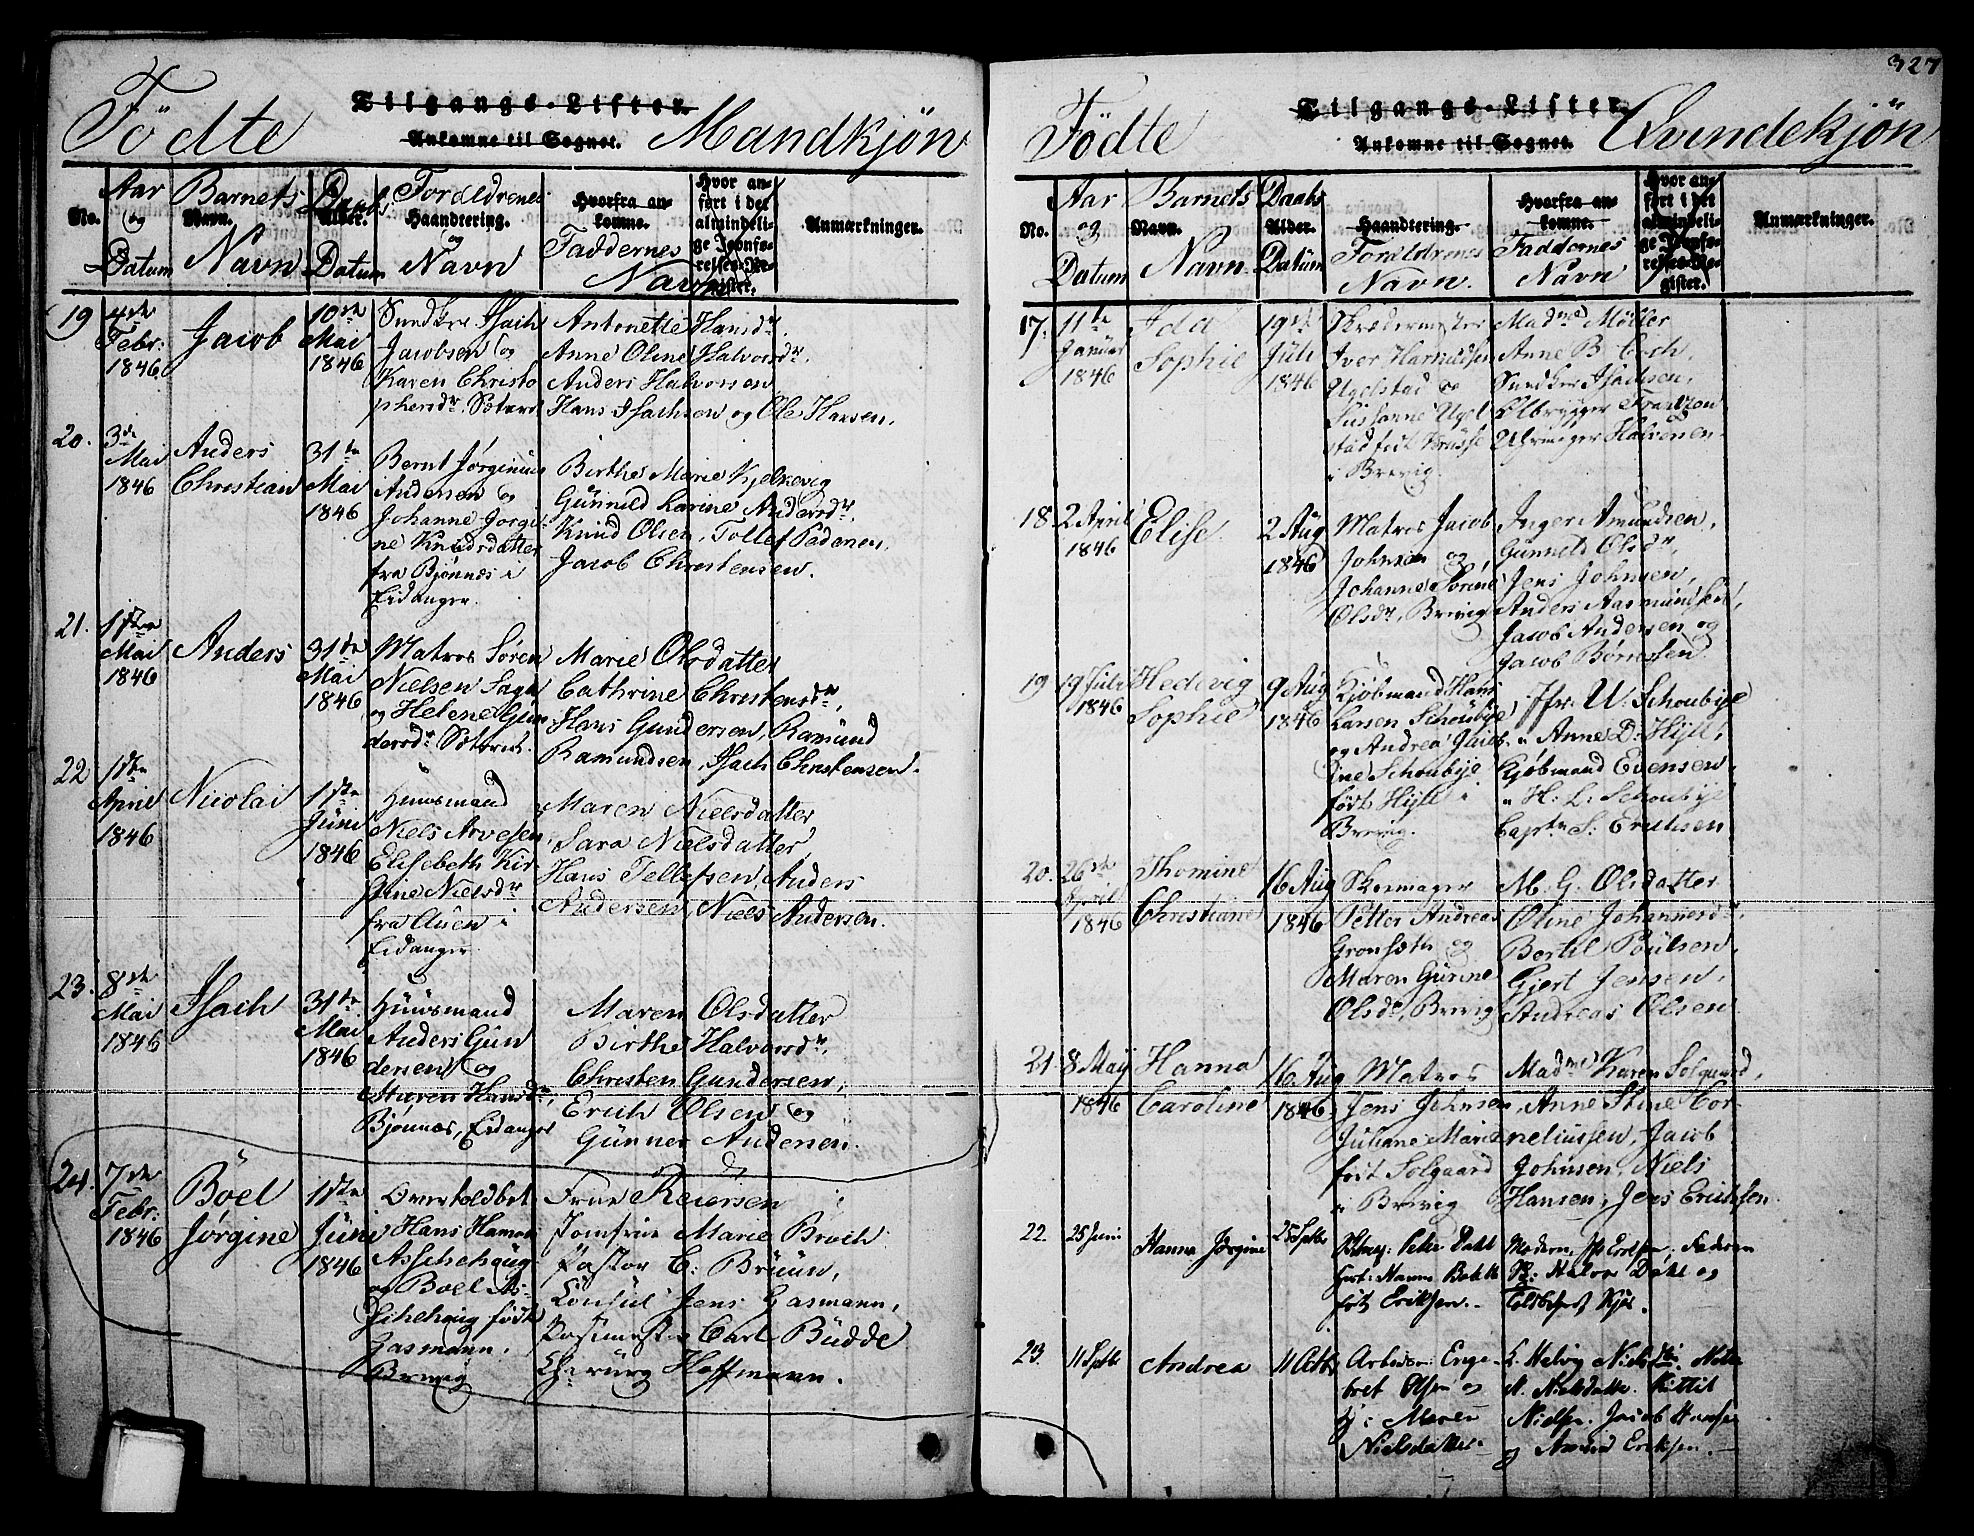 327
Tilgangs-Lister.
Ankomne til Sognet.
Födte Mandkjön
No.
Aar og Datum
Barnets Navn
Navn.
Daabs Datum
Alder.
Foreldrenes
Haandtering.
og Navn
Hvorfra ankomne.
Faddernes Navn
Hvor anført i det almindelige Jevnførelses-Register.
Anmærkninger.
19
4de Febr: 1846
Jacob
10de Mai 1846
Isach
Jacobsen og
Karen Christo
phersdr.
Antonette Hansdr.
Anne Oline Halvorsdr.
Anders Halvorsen
Hans Isachsen og Ole Hansen.
20.
3de Mai 1846
Anders
Christian
31te Mai 1846
Bernt Jörginus
Andersen og
Johanne Jorgi-
ne Knudsdatter
fra Bjönnes i
Eidanger.
Birthe Marie Kjelnevig
Günnild Karine Andersdr.
Knud Olsen, Tollef Pedersen,
Jacob Christensen.
21.
Mai 1846
Anders
31te Mai 1846
Matros Sören
Nielsen
og Helene Gün
dersdr
Marie Olsdatter
Cathrine Christensdr,
Hans Gundersen, Ramünd
Ramundsen, Isach Christensen.
22
1ste April 1846
Nicolai
1ste Jüni 1846
Huusmand
Niels Arvesen,
Elisebeth Kir
stine Nielsdr
fra Auen i
Eidanger
Maren Nielsdatter
Sara Nielsdatter,
Hans Tellefsen, Anders
Andersen, Niels Andersen.
23.
8de Mai 1846
Isach
31te Mai 1846
Hüüsmand
Anders Gün
dersen og
Maren Hansdr,
Bjönnes, Eidanger
Maren Olsdatter
Birthe Halvorsdr,
Christen Gundersen,
Erich Olsen og
Günner Andersen.
24.
7de Febr: 1846
Böel
Jörgine
1ste Jüni 1846
Overtoldbet
Hans
Asschehoug
og Boel As-
schehoug födt
Gasmann,
Brevig
Frue Reiersen
Jomfrue Marie Broch
Pastor C: Brüün,
Consul Jens Gasmann,
Postmester Carl Büdde
Chirurg Hoffmann.
Tilgangs-Lister.
Ankomne til Sognet.
Födte Qvindekjön
No.
Aar og Datum
Barnets Navn.
Navn.
Daabs Datüm
Alder.
Haandtering.
Foreldrenes Navn.
Hvorfra ankomne.
Faddernes Navn
Hvor anført i det almindelige Jevnførelses-Register.
Anmærkninger.
17.
11te Januar 1846
Ida
Sophie
19de Juli 1846
Skredermester
Iver
Ugelstad og
Susanne Ugel
stad födt
i Brevig.
Madme Möller
Anne B. Coch,
Isachsen,
Ölbrygger Frantzon
Uhrmager Halvorsen
18.
2 April 1846
Elise.
2 Aug 1846
Matros Jacob
Johnsen og
Johanne Sörine
Olsdr, Brevig
Inger Amundsen,
Gunnild Olsdr,
Jens Johnsen,
Anders Aasmundsen,
Jacob Andersen og
Jacob Börresen
19
19 Juli 1846
Hedevig
Sophie
9 Aug 1846
Kjöbmand Hans
Larsen Schoubye
og Andrea Jacob-
ine Schoubye
födt Hyll i
Brevig.
Jfr: U. Schoubye
" Anne D. Hyll,
Kjöbmand Evensen,
" H. L: Schoubye
Captn S: Erichsen
20.
26de April 1846
Thomine
Christiane
16 Aug 1846
Skomager
Petter Andreas
Gronseth og
Maren Gurine
Olsdr, Brevig
M. G. Olsdatter
Oline Johannesdr,
Bertil Poulsen,
Gjert Jensen,
Andreas Olsen
21.
8 May 1846
Hanna
Caroline
16 Aug 1846
Matros
Jens Johnsen
Juliane Marie
födt Solgaard
i Brevig
Madme Karen Solgaard,
Anne Stine Cor-
neliussen, Jacob
Johnsen, Niels
Hansen, Jens Erichsen.
22.
25 Juni
Hanna Jørgine
25 Septbr
Peter Dahl
Hanna
født Eriksen.
Moderen, Faderen
Halvor Dahl og
23.
11 Septbr
Andrea
11 Octbr
Arbeider Enge-
bret Olsen og
H: Maren
Nielsdatter
Helvig
M. Nielsdatter. Kittil
Nielsen. Jacob Hansen
og Amund Eriksen.